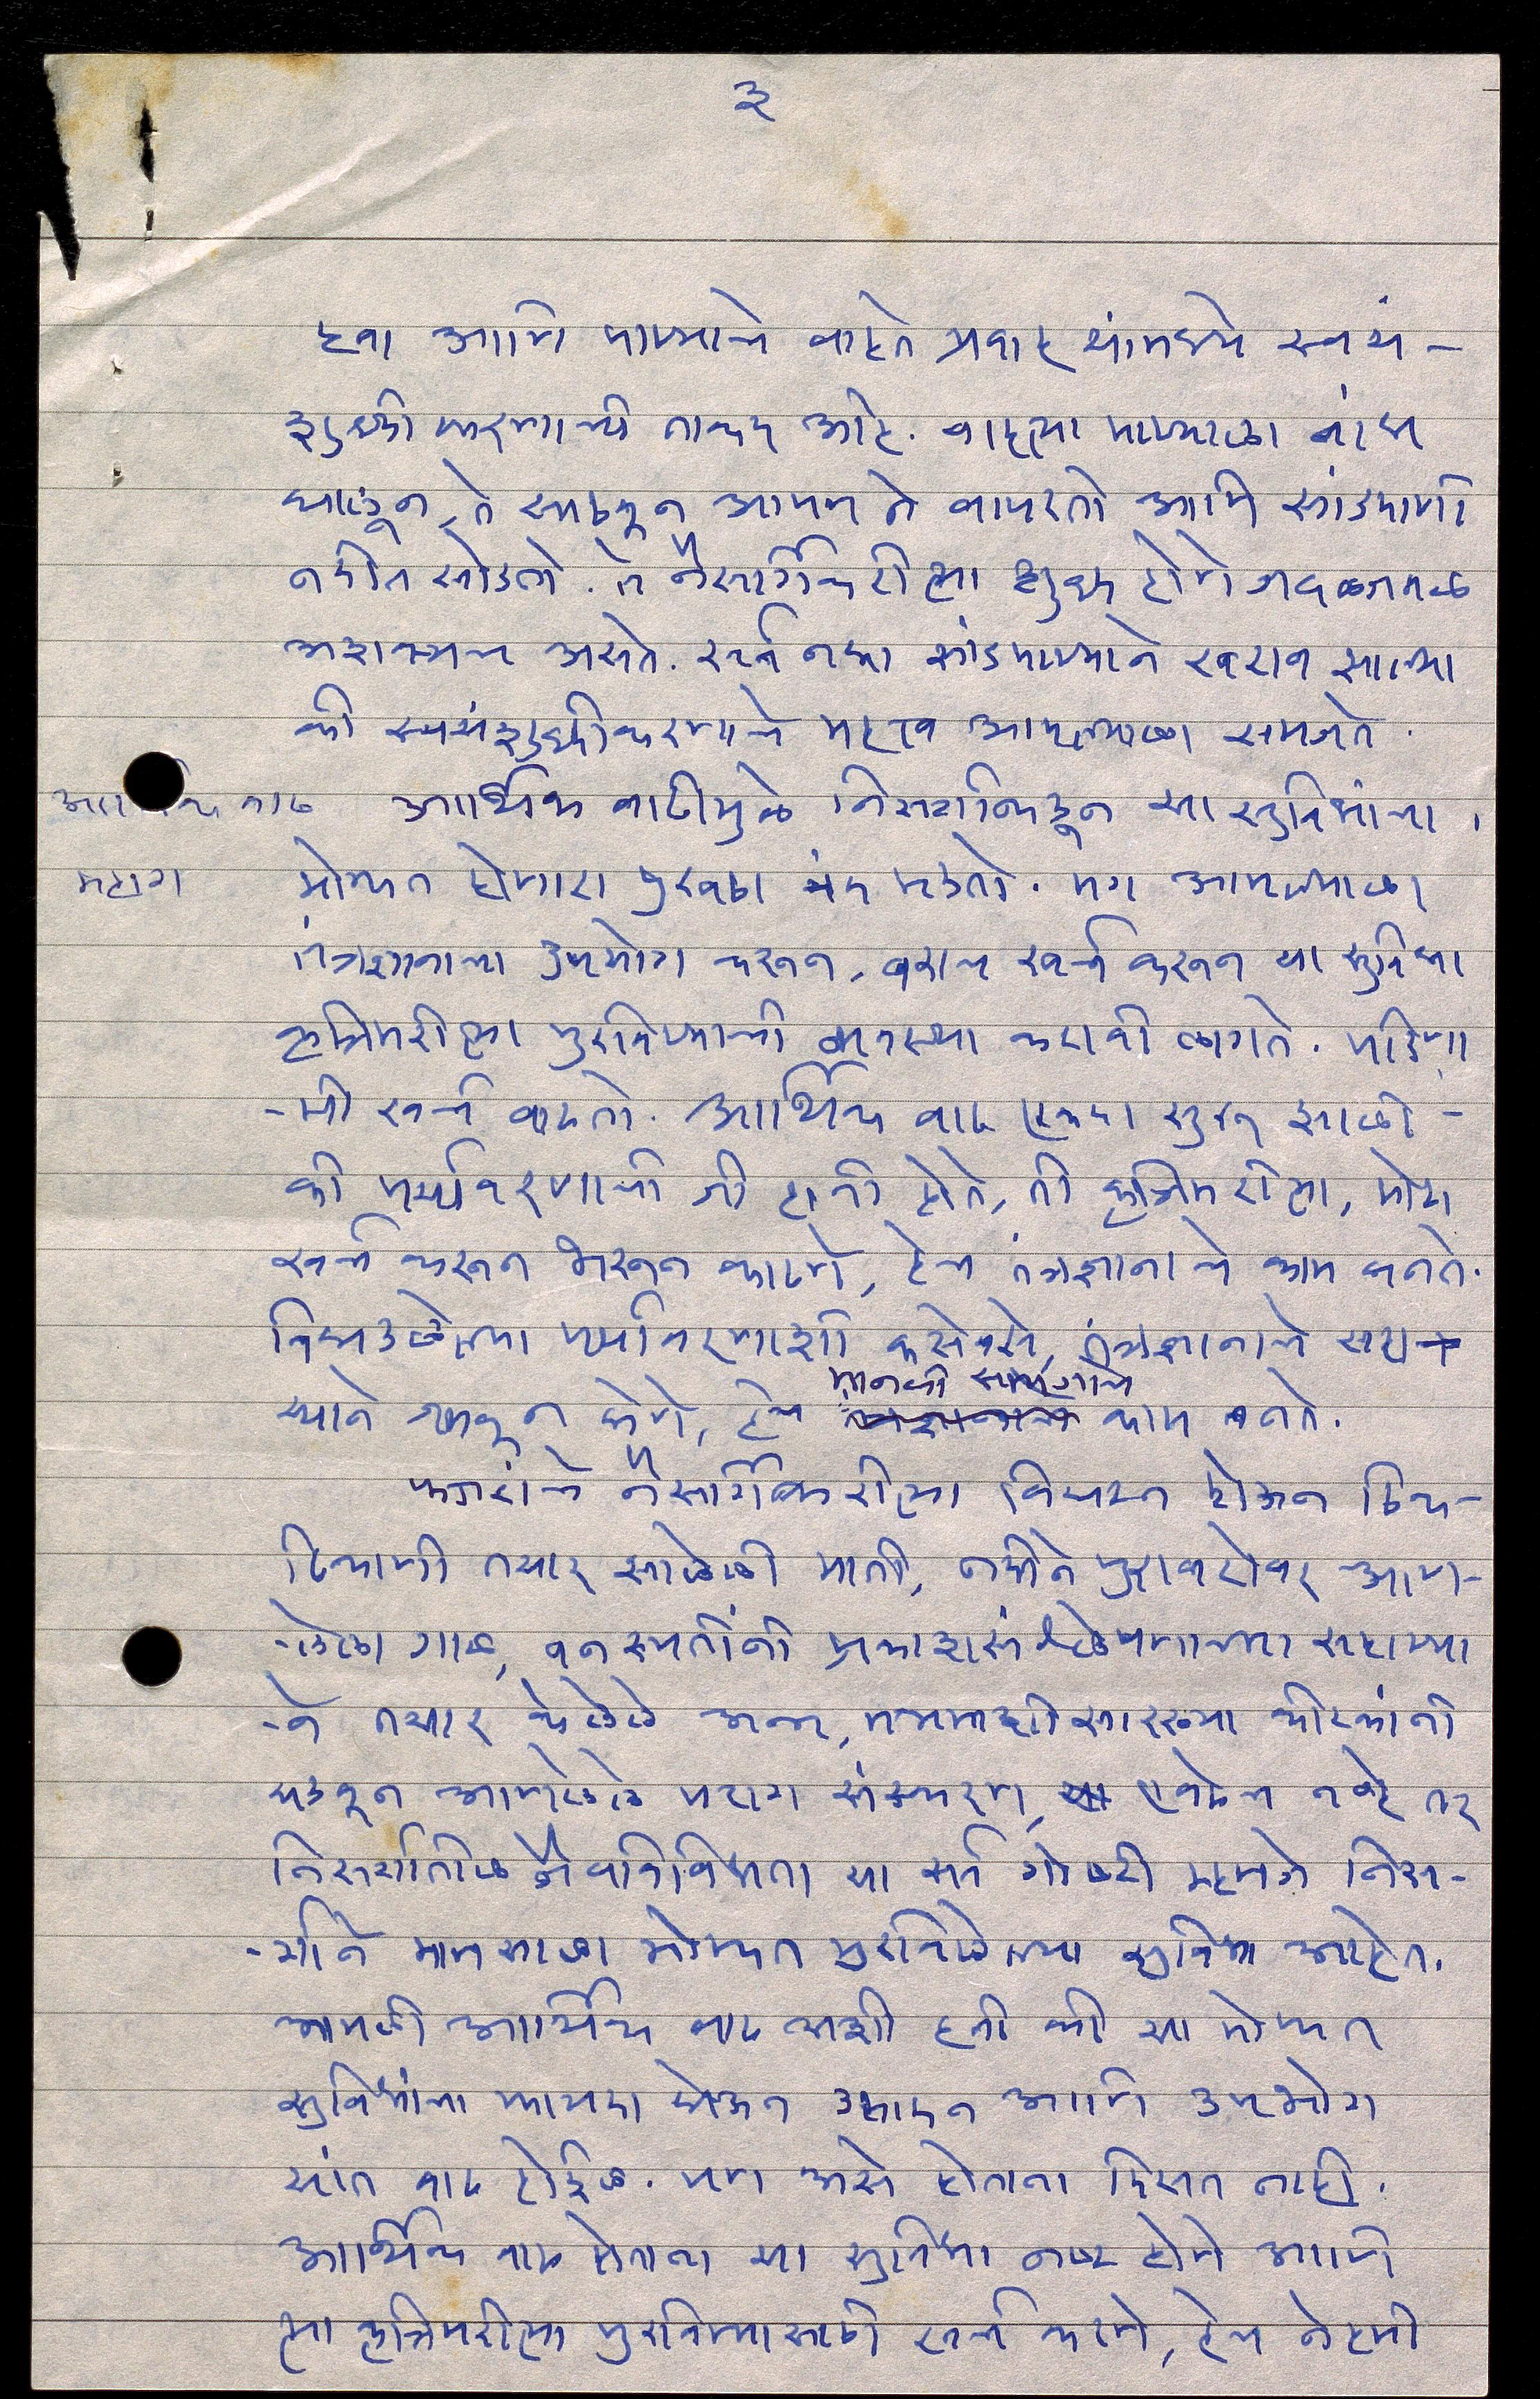 ३
हवा आणि पाण्याचे वाहते प्रवाह यांमध्ये स्वयं-
शुद्धी करणाची ताकद आहे. वाहत्या पाण्याला बांध
घालून, ते साठवून आपण ते वापरतो आणि सांडपाणी
नदीत सोडतो. ते नैसर्गिकरीत्या शुद्ध होणे जवळजवळ
अशक्यच असते. सर्व नद्या सांडपाण्याने खराब झाल्या
की स्वयंशुद्धीकरणाचे महत्व आपल्याला समजते.
वाढ आर्थिक वाढीमुळे निसर्गाकडून या सुविधांचा
महाग मोफत होणारा पुरवठा बंद पडतो. मग आपल्याला
तंत्रज्ञानाचा उपयोग करून, बराच खर्च करून या सुविधा
कृत्रिमरीत्या पुरविण्याची व्यवस्था करावी लागते. परिणा
-मी खर्च वाढतो. आर्थिक वाढ एकदा सुरू झाली -
की पर्यावरणाची जी हानी होते, ती कृत्रिमरीत्या, मोठा
खर्च करून भरून काढणे, हेच तंत्रज्ञानाचे काम बनते.
बिघडलेल्या पर्यावरणाशी कसेबसे, तंत्रज्ञानाचे सहा-
य्याने जमवून घेणे, हेच मानवी समाजाचे काम बनते.
कचऱ्याचे नैसर्गिकरीत्या विघटन होऊन ठिक-
ठिकाणी तयार झालेली माती, नदीने पुराबरोबर आण-
-लेला गाळ, वनस्पतींनी प्रकाशसंश्लेषणाच्या सहाय्या
-ने तयार केलेले अन्न, मधमाशी सारख्या कीटकांनी
घडवून आणलेले पराग संक्रमण, एवढेच नव्हे तर
निसर्गातील जैवविविधता या सर्व गोष्टी म्हणजे निस-
-र्गाने माणसाला मोफत पुरविलेल्या सुविधा आहेत.
आपली आर्थिक वाढ अशी हवी की या मोफत
सुविधांचा फायदा घेऊन उत्पादन आणि उपभोग
यांत वाढ होईल. पण असे होताना दिसत नाही.
आर्थिक वाढ होताना या सुविधा नष्ट होणे आणि
त्या कृत्रिमरीत्या पुरविण्यासाठी खर्च करणे, हेच नेहमी